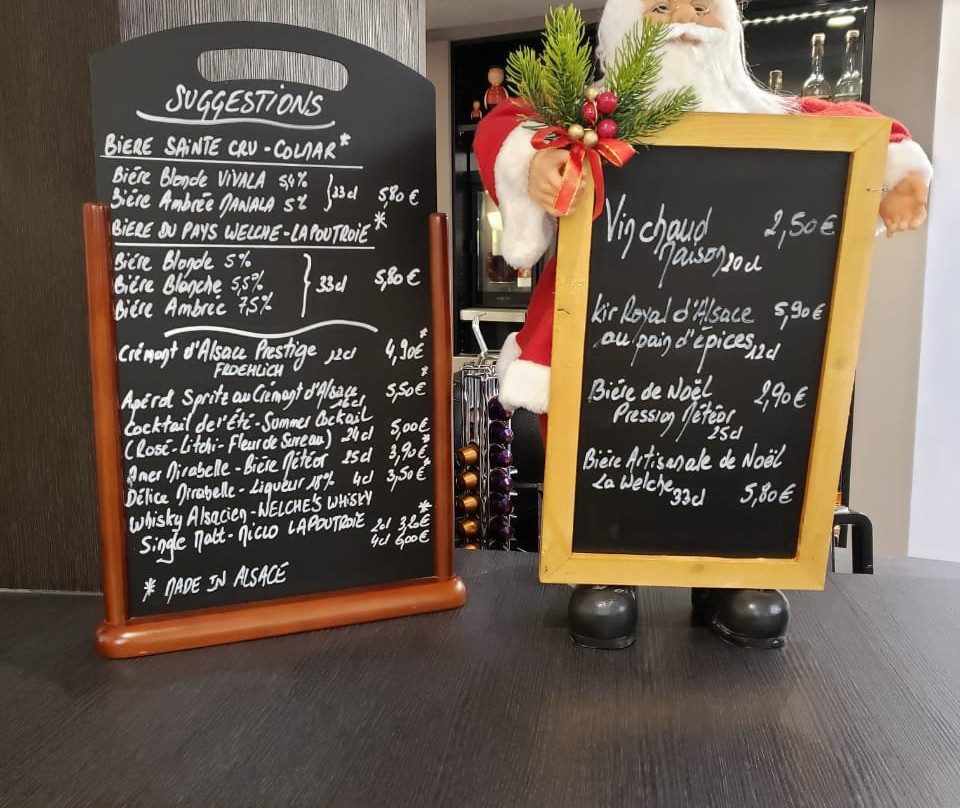 SUGGESTIONS
BIERE SAINTE CRU - COLMAR *
Bière Blonde VIVALA 5,4%
Bière Ambrée MANALA 5% } 33cl 5,80 €
BIÈRE DU PAYS WELCHE - LAPOUTROIE *
Bière Blonde 5%
Bière Blanche 5,5% } 33cl 5,80 €
Bière Ambrée 7,5%
Crémant d'Alsace Prestige 12cl 4,90€ *
FROEHLICH
Apérol Spritz au Crémant d'Alsace 16cl 5,50€ *
Cocktail de l'Été - Summer Cocktail
(Rosé - Litchi - Fleur de Sureau) 24cl 5,00€
Amer Mirabelle - Bière Météor 25cl 3,90€ *
Délice Mirabelle - Liqueur 18% 4cl 3,50€ *
Whisky Alsacien - WELCHE'S WHISKY
Single Malt - Miclo LAPOUTROIE 2cl 3,20€ *
4cl 6,00€
* MADE IN ALSACE
Vin chaud 2,50€
Maison 20cl
Kir Royal d'Alsace 5,90€
au pain d'épices 12cl
Bière de Noël 2,90€
Pression Météor
25cl
Bière Artisanale de Noël
La Welche 33cl 5,80€